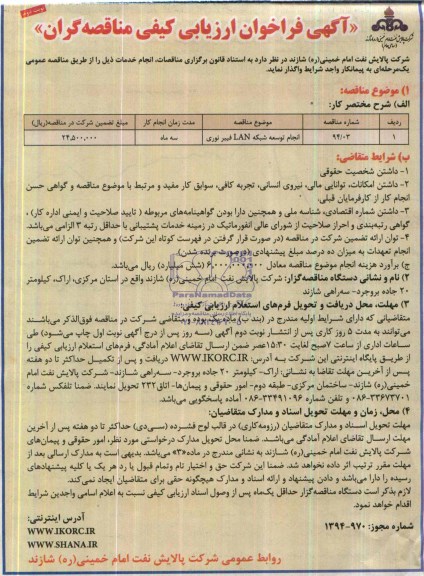 نوبت دوم
«آگهی فراخوان ارزیابی کیفی مناقصه‌گران»
شرکت پالایش نفت امام خمینی(ره) شازند در نظر دارد به استناد قانون برگزاری مناقصات، انجام خدمات ذیل را از طریق مناقصه عمومی
یک‌مرحله‌ای به پیمانکار واجد شرایط واگذار نماید.
۱) موضوع مناقصه:
الف) شرح مختصر کار:
ردیف شماره مناقصه موضوع مناقصه مدت زمان انجام کار مبلغ تضمین شرکت در مناقصه(ریال)
۱ ۹۴/۰۳ انجام توسعه شبکه LAN فیبر نوری سه ماه ۲۴,۵۰۰,۰۰۰
ب) شرایط متقاضی:
۱- داشتن شخصیت حقوقی
۲- داشتن امکانات، توانایی مالی، نیروی انسانی، تجربه کافی، سوابق کار مفید و مرتبط با موضوع مناقصه و گواهی حسن
انجام کار از کارفرمایان قبلی.
۳- داشتن شماره اقتصادی، شناسه ملی و همچنین دارا بودن گواهینامه‌های مربوطه ( تایید صلاحیت و ایمنی اداره کار) ،
گواهی رتبه‌بندی و احراز صلاحیت از شورای عالی انفورماتیک در زمینه خدمات پشتیبانی با حداقل رتبه ۳ الزامی می‌باشد.
۴- توان ارائه تضمین شرکت در مناقصه (در صورت قرار گرفتن در فهرست کوتاه این شرکت) و همچنین توان ارائه تضمین
انجام تعهدات به میزان ده درصد مبلغ پیشنهادی (در صورت برنده شدن)
ج) برآورد هزینه انجام موضوع مناقصه معادل ۶,۰۰۰,۰۰۰,۰۰۰ (شش میلیارد) ریال می‌باشد.
۲) نام و نشانی دستگاه مناقصه‌گزار: شرکت پالایش نفت امام خمینی(ره) شازند واقع در استان مرکزی، اراک، کیلومتر
۲۰ جاده بروجرد- سه‌راهی شازند
۳) مهلت، محل دریافت و تحویل فرم‌های استعلام ارزیابی کیفی:
متقاضیانی که دارای شرایط اولیه مندرج در (بند ب) ماده یک بوده و متقاضی شرکت در مناقصه فوق‌الذکر می‌باشند
می‌توانند به مدت ۵ روز کاری پس از انتشار نوبت دوم آگهی (سه روز پس از درج آگهی نوبت اول چاپ می‌شود) طی
ساعات اداری از ساعت ۷صبح لغایت ۱۵:۳۰عصر ضمن ارسال تقاضای اعلام آمادگی، فرم‌های استعلام ارزیابی کیفی را
از طریق پایگاه اینترنتی این شرکت به آدرس: WWW.IKORC.IR دریافت و پس از تکمیل حداکثر تا دو هفته
پس از آخرین مهلت تقاضا به نشانی: اراک- کیلومتر ۲۰ جاده بروجرد- سه‌راهی شازند- شرکت پالایش نفت امام
خمینی(ره) شازند- ساختمان مرکزی- طبقه دوم- امور حقوقی و پیمان‌ها- اتاق ۲۳۲ تحویل نمایند. ضمنا تلفکس شماره
۰۸۶-۳۳۶۷۳۷۰۱ و تلفن شماره ۰۸۶-۳۳۴۹۱۰۹۶ آماده پاسخگویی می‌باشد.
۴) محل، زمان و مهلت تحویل اسناد و مدارک متقاضیان:
مهلت تحویل اسناد و مدارک متقاضیان (رزومه‌کاری) در قالب لوح فشرده (سی‌دی) حداکثر تا دو هفته پس از آخرین
مهلت ارسال تقاضای اعلام آمادگی می‌باشد. ضمنا محل تحویل مدارک درخواستی مورد نظر، امور حقوقی و پیمان‌های
شرکت پالایش نفت امام خمینی(ره) شازند به نشانی مندرج در ماده«۳» می‌باشد. بدیهی است به مدارک ارسالی بعد از
مهلت مقرر ترتیب اثر داده نخواهد شد. ضمنا این شرکت حق و اختیار تام وتمام قبول یا رد هر یک یا کلیه پیشنهادهای
رسیده را دارا می‌باشد و دادن پیشنهاد و ارائه اسناد و مدارک هیچگونه حقی برای متقاضیان ایجاد نمی‌کند.
لازم بذکر است دستگاه مناقصه‌گزار حداقل یک‌ماه پس از وصول اسناد ارزیابی کیفی نسبت به اعلام اسامی واجدین شرایط
اقدام خواهد نمود.
شماره مجوز: ۹۷۰-۱۳۹۴
آدرس اینترنتی:
WWW.IKORC.IR
WWW.SHANA.IR
روابط عمومی شرکت پالایش نفت امام خمینی(ره) شازند
ParsNamadData